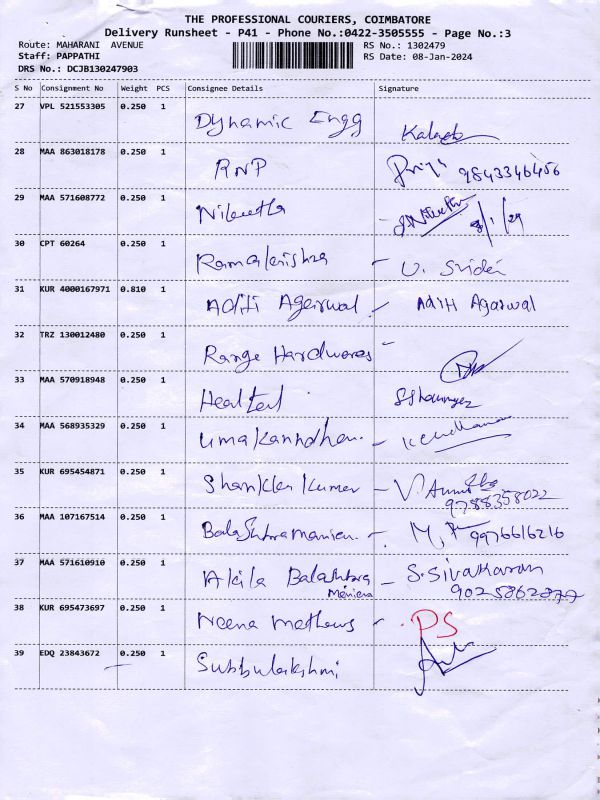 THE PROFESSIONAL COURIERS, COIMBATORE
Delivery Runsheet - P41 - Phone No.:0422-3505555 - Page No.:3
Route: MAHARANI AVENUE RS No.: 1302479
Staff: PAPPATHI RS Date: 08-Jan-2024
DRS No.: DCJB130247903
S No Consignment No Weight PCS Consignee Details Signature
27 VPL 521553305 0.250 1 Dynamic Engg
28 MAA 863018178 0.250 1 RNP 9843346456
29 MAA 571608772 0.250 1 8/1/24
30 CPT 60264 0.250 1 Ramakrishna - U. Sridei
31 KUR 4000167971 0.810 1 Aditi Agerwal - Aditi Agarwal
32 TRZ 130012480 0.250 1 Range Hardwares -
33 MAA 570918948 0.250 1
34 MAA 568935329 0.250 1 Umakanndhan -
35 KUR 695454871 0.250 1 Shankker Kumar - V.
9788358022
36 MAA 107167514 0.250 1 - M. 9976616216
37 MAA 571610910 0.250 1 Akila - S. Sivakaran
9025862877
38 KUR 695473697 0.250 1 Neena Mathews - PS
39 EDQ 23843672 0.250 1 Subbulakshmi